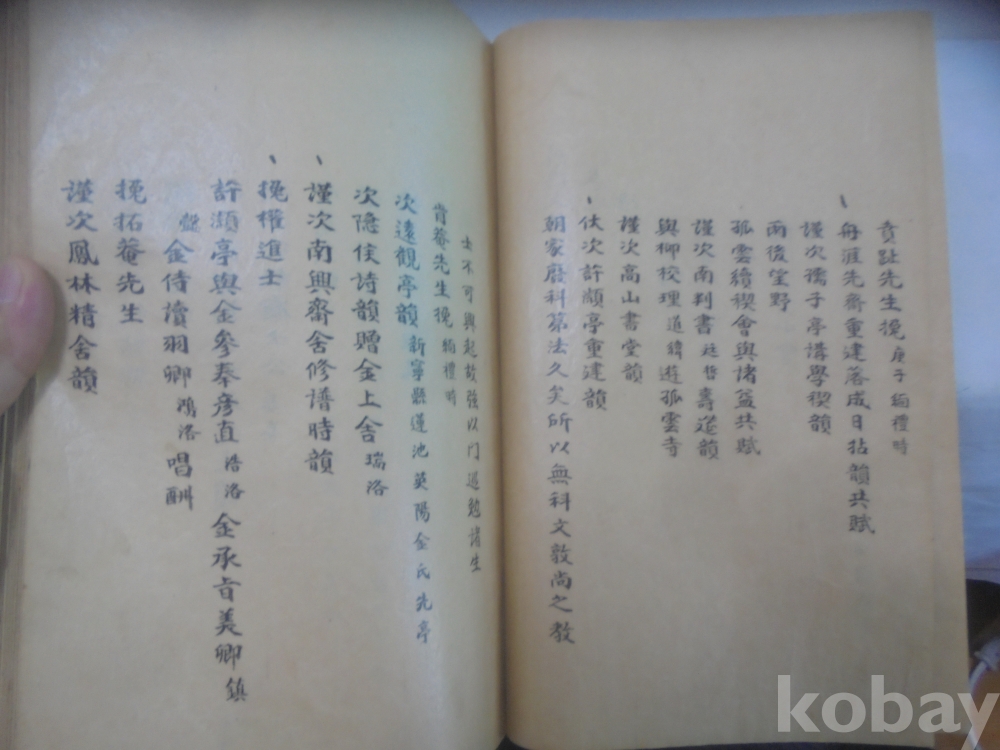 賁趾先生挽 庚子緬禮時
每涯先齋重建落成日拈韻共賦
謹次孺子亭講學稧韻
雨後望野
孤雲續稧會與諸益共賦
謹次南判書廷哲壽筵韻
與柳校理道緯遊孤雲寺
謹次高山書堂韻
伏次許瀬亭重建韻
朝家廢科第法久矣所以無科文敦尚之教
士不可興起故强以門選勉諸生
肯菴先生挽 緬禮時
次遠觀亭韻 新寧縣蓮池英陽金氏先亭
次隐侯詩韻贈金上舍 瑞洛
謹次南興齋舍修譜時韻
挽權進士
許瀬亭與金參奉彦直 浩洛 金承旨美卿 鎮
懿 金侍讀羽卿 鴻洛 唱酬
挽拓菴先生
謹次鳳林精舍韻
kobay